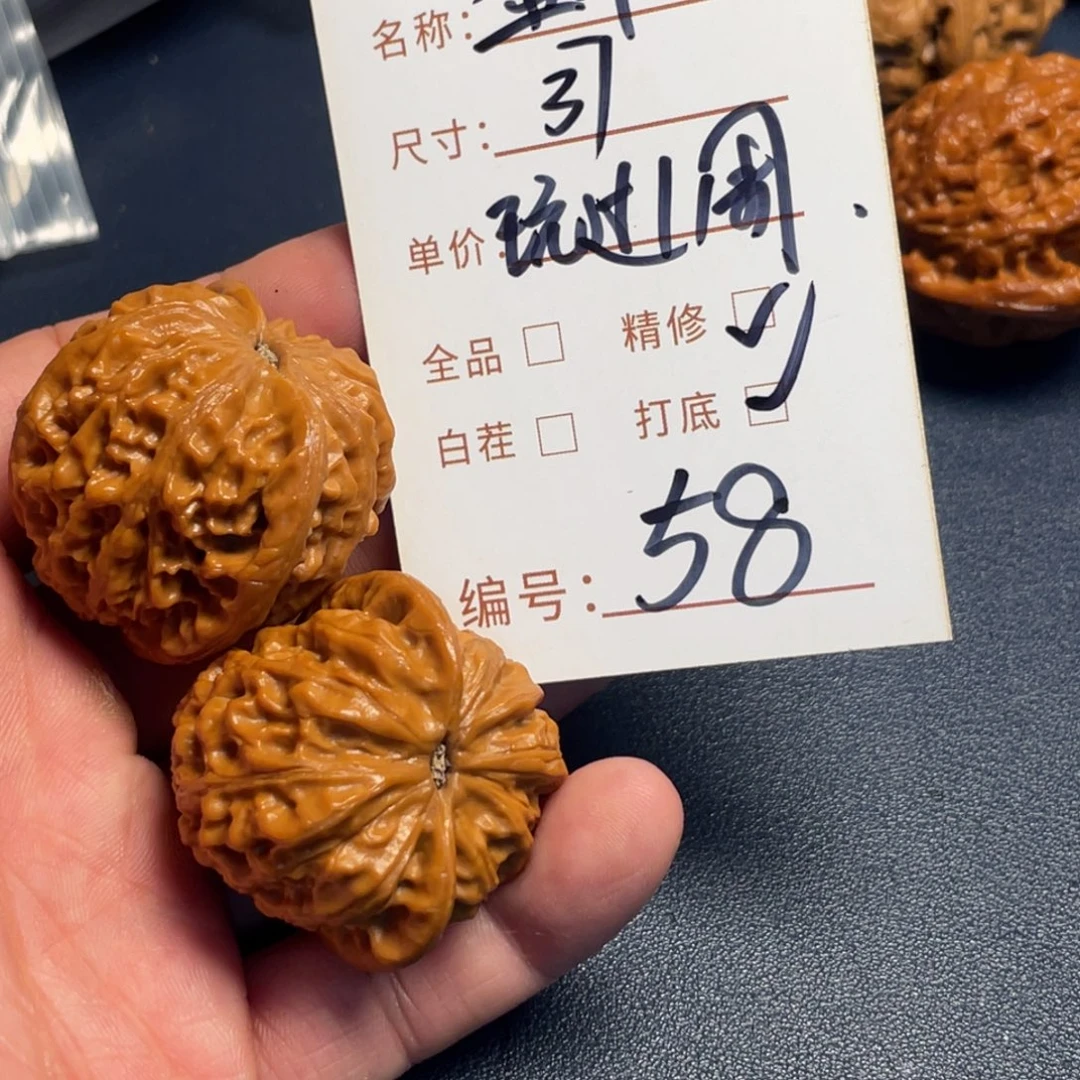 名称：
尺寸： 37
单价： 玩过1周
全品 □ 精修 ☑
白茬 □ 打底 ☑
编号： 58